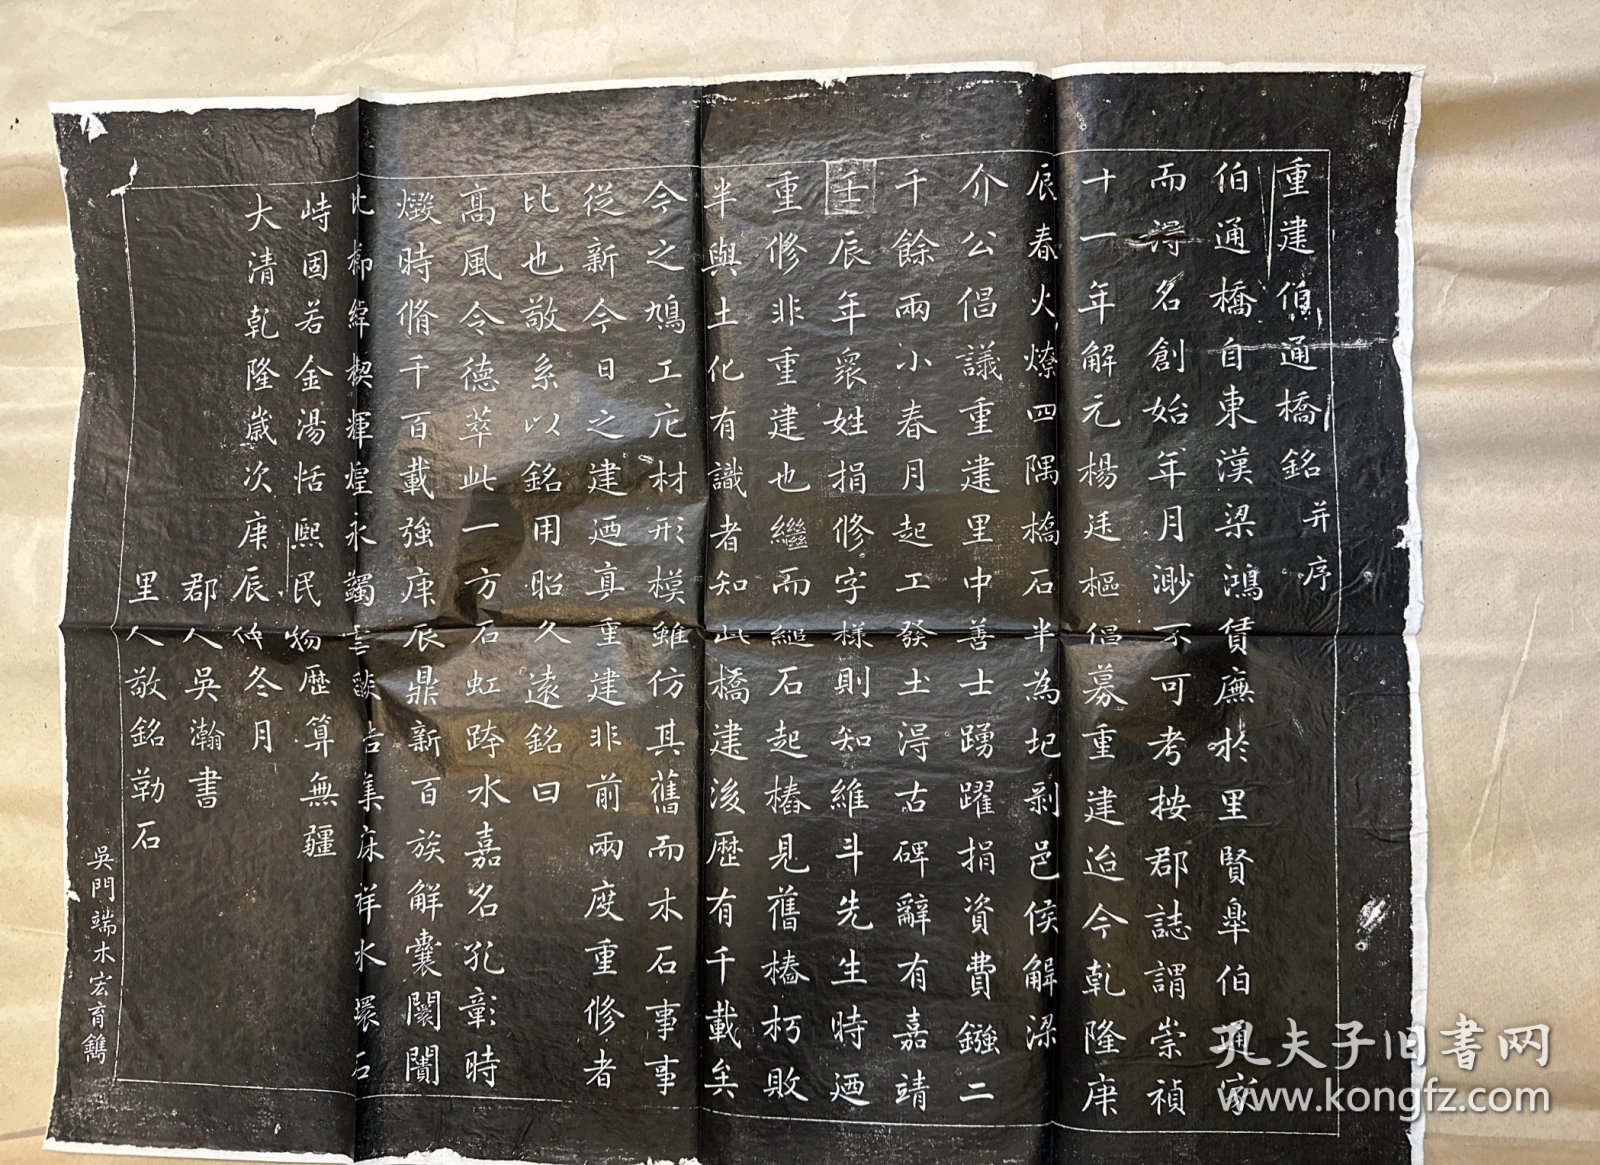 重建伯通橋銘 并序
伯通橋自東漢梁鴻賃廡於里賢皐伯通家
而淂名創始年月渺不可考按郡誌謂崇禎
十一年解元楊廷樞倡募重建迨今乾隆庚
辰春火燎四隅橋石半為圮剥邑侯解梁
介公倡議重建里中善士踴躍捐資費鏹二
千餘兩小春月起工發土淂古碑辭有嘉靖
壬辰年衆姓捐修字樣則知維斗先生時迺
重修非重建也繼而縋石起樁見舊樁朽敗
半與土化有識者知此橋建後歷有千載矣
今之鳩工庀材形模雖仿其舊而木石事事
從新今日之建迺真重建非前兩度重修者
比也敬系以銘用昭久遠銘曰
高風令德萃此一方石虹跨水嘉名孔彰時
燬時脩千百載強庚辰鼎新百族解囊闤闠
比櫛緯楔輝煌永蠲吉集庥祥水環石
峙固若金湯恬熙民物歷算無疆
大清乾隆歲次庚辰仲冬月
郡人吳瀚書
里人敬銘勒石
吳門端木宏育鐫
孔夫子旧书网
www.kongfz.com